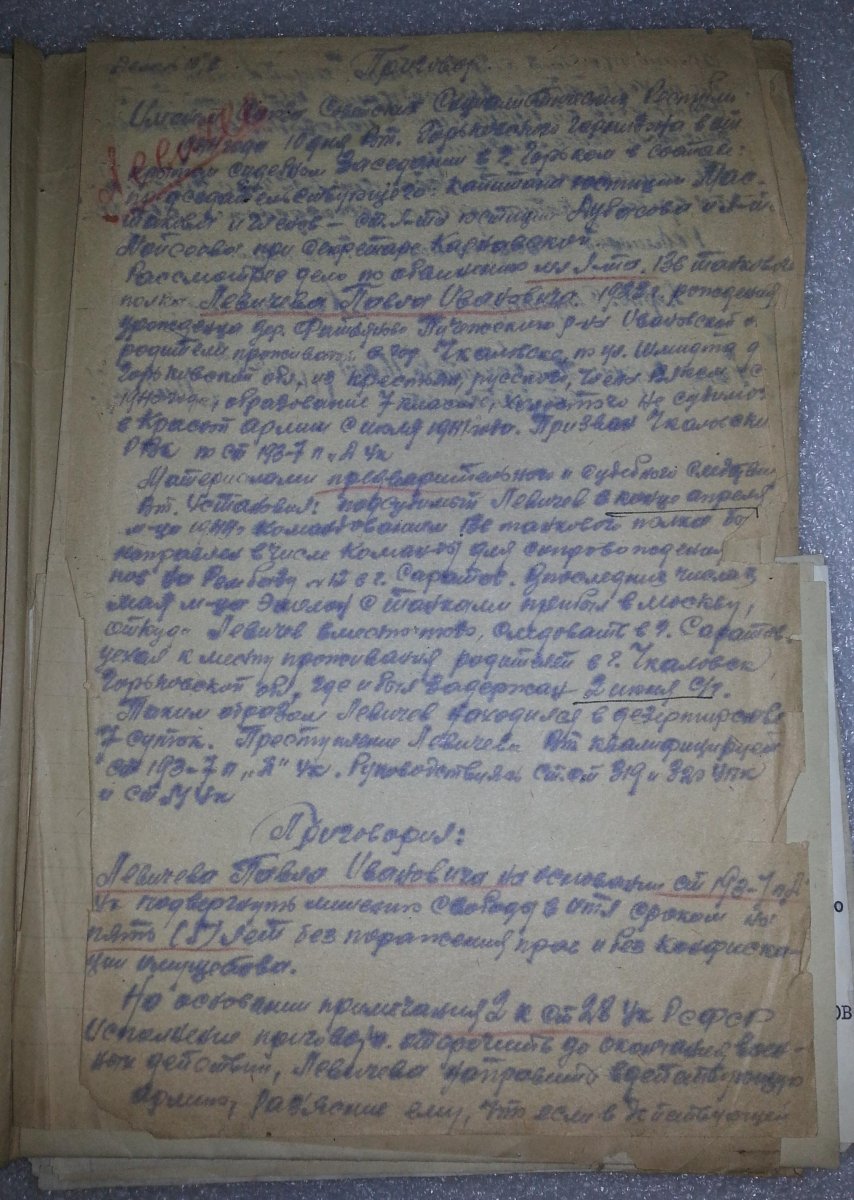 Приговор.
Именем Союза Советских Социалистических Республик
июня 10 дня Вт. Горьковского Гарнизона в от
крытом судебном заседании в г. Горьком в составе:
председательствующего капитана юстиции Мас-
и членов – ст. л-та юстиции Дубасова и л-та
Мойсеева при секретаре
Рассмотрев дело по обвинению мл л-та. 136 танкового
полка Левичева Павла Ивановича. 1922 г. рождения
урожденца дер. Пучежского р-на Ивановской о
родители проживают в гор. Чкаловске, по ул. Шмидта д
Горьковской обл, из крестьян, русского, член ВЛКСМ с
образование 7 классов, холостого не судимого
в Красной армии с июля 1941 года. Призван Чкаловским
РВК по ст 193-7 п „Д" УК
Материалами предварительного и судебного следствия
Вт. Установил: подсудимый Левичев в конце апреля
м-ца 1944 г командованием 136 танкового полка был
направлен в числе команды для сопровождения
ков на Ремзавод в г. Саратов. В последних числах
мая м-ца эшелон с танками прибыл в Москву,
откуда Левичев вместо того, следовать в г. Саратов,
уехал к месту проживания родителей в г. Чкаловск
Горьковской обл, где и был задержан 2 июня с/г.
Таким образом Левичев находился в дезертирстве
7 суток. Преступление Левичева Вт квалифицирует
ст 193-7 п „Д" УК. Руководствуясь ст.ст 319 и 320 УПК
и ст 51 УК
Приговорил:
Левичева Павла Ивановича на основании ст 193-7 п „Д"
УК подвергнуть лишению свободы в ИТЛ сроком на
пять (5) лет без поражения прав и без конфиска-
ции имущества.
На основании примечания 2 к ст 28 УК РСФСР
исполнение приговора отсрочить до окончания воен-
ных действий, Левичева направить в действующую
армию, разъяснив ему, что если в действующей